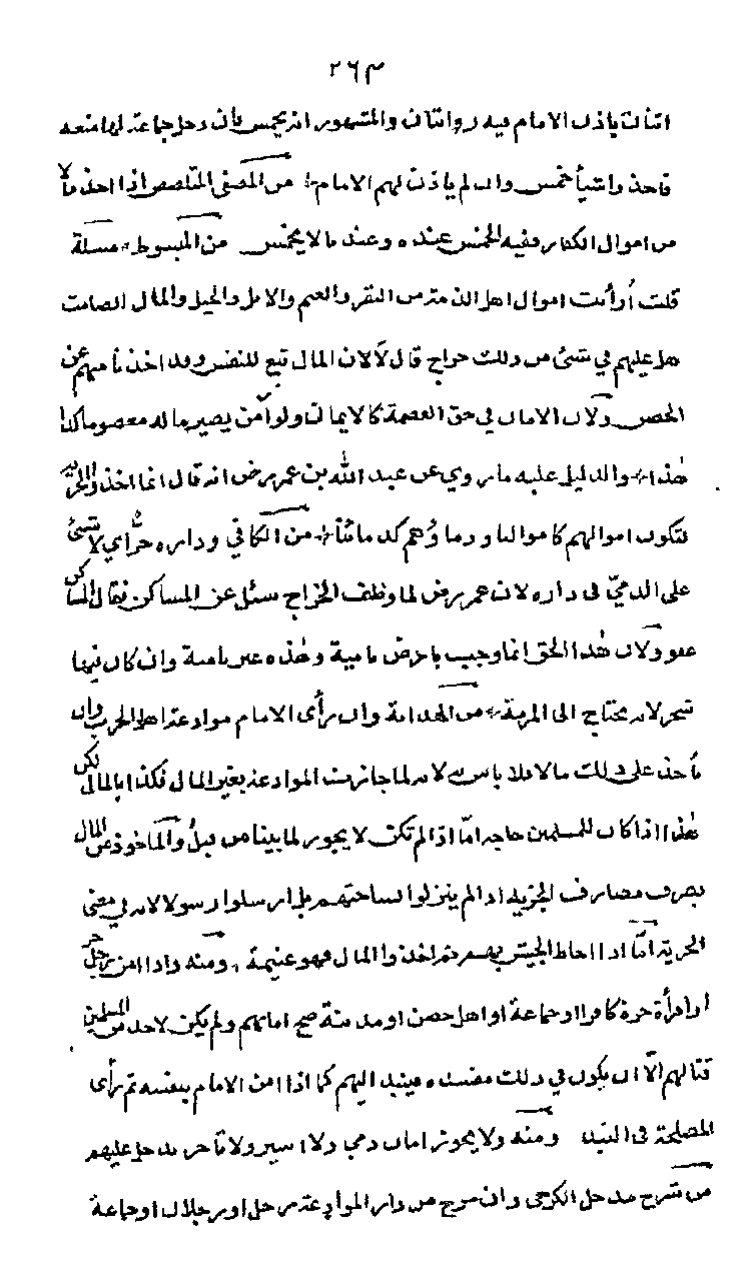 ٢٦٣
اثنان باذن الامام فيه روايتان والمشهور انه يخمس فان دخل جماعة لها منعة
فاخذوا شيأ خمس وان لم ياذن لهم الامام من المصفى المتلصص اذا اخذ مالا
من اموال الكفار ففيه الخمس عنده وعندهما لا يخمس من المبسوط مسئلة
قلت أرأيت اموال اهل الذمة من البقر والغنم والابل والخيل والمال الصامت
هل عليهم في شئ من ذلك خراج قال لا لان المال تبع للنفس وقد اخذنا منهم عن
ولان الامان في حق العصمة كالايمان ولو آمن يصير ماله معصوما كذا
هذا والدليل عليه ما روي عن عبد الله بن عمر رض انه قال انما اخذوا الجزية
لتكون اموالهم كاموالنا ودماؤهم كدمائنا من الكافي وداره حر أي لا شئ
على الذمي في داره لان عمر رض لما وظف الخراج سئل عن المساكن فقال المساكن
عفو ولان هذا الحق انما وجب بارض نامية وهذه غير نامية وان كان فيها
شجر لانه يحتاج الى المرمة من الهداية وان رأى الامام موادعة اهل الحرب وان
يأخذ على ذلك مالا فلا باس به لانه لما جازت الموادعة بغير المال فكذا بالمال لكن
هذا اذا كان للمسلمين حاجة امّا اذا لم تكن لا يجوز لما بينا من قبل والمأخوذ من المال
يصرف مصارف الجزية اذا لم ينزلوا بساحتهم بل ارسلوا رسولا لانه في معنى
الجزية امّا اذا احاط الجيش بهم ثم اخذوا المال فهو غنيمة ومنه واذا امن رجل حر
او امرأة حرة كافرا او جماعة او اهل حصن او مدينة صح امانهم ولم يكن لاحد من المسلمين
قتالهم الّا ان يكون في ذلك مفسدة فينبذ اليهم كما اذا امن الامام بنفسه ثم رأى
المصلحة في النبذ ومنه ولا يجوز امان ذمي ولا اسير ولا تاجر يدخل عليهم
من شرح الكرخي وان خرج من دار الموادعة رجل او رجلان او جماعة